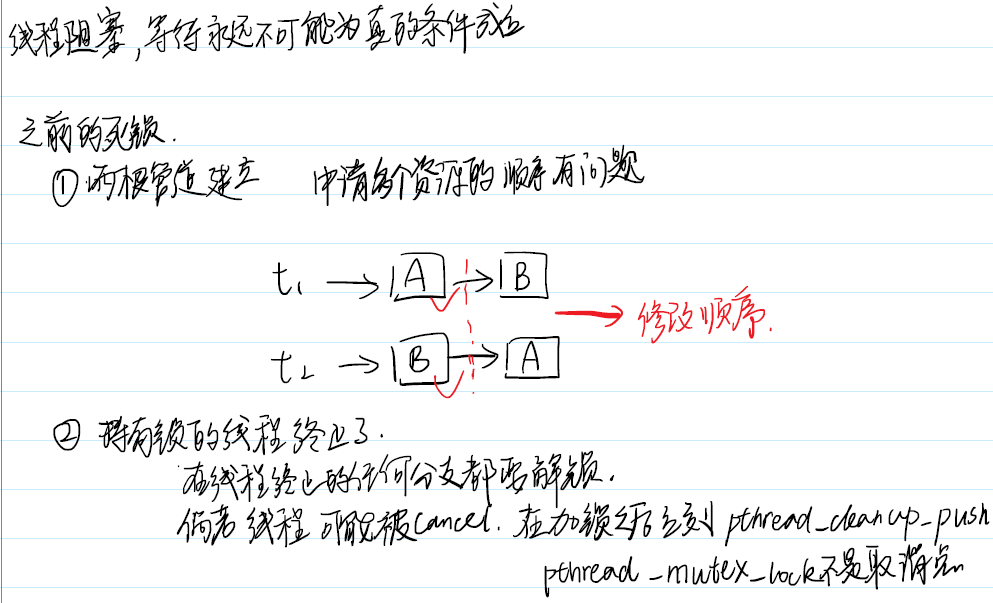 线程阻塞,等待永远不可能为真的条件成立
之前的死锁.
① 两根管道建立 申请多个资源的顺序有问题
t₁ → A → B
→ 修改顺序.
t₂ → B → A
② 持有锁的线程终止了.
在线程终止的任何分支都要解锁.
倘若线程可能被cancel. 在加锁之后立刻 pthread_cleanup_push
pthread_mutex_lock不是取消点